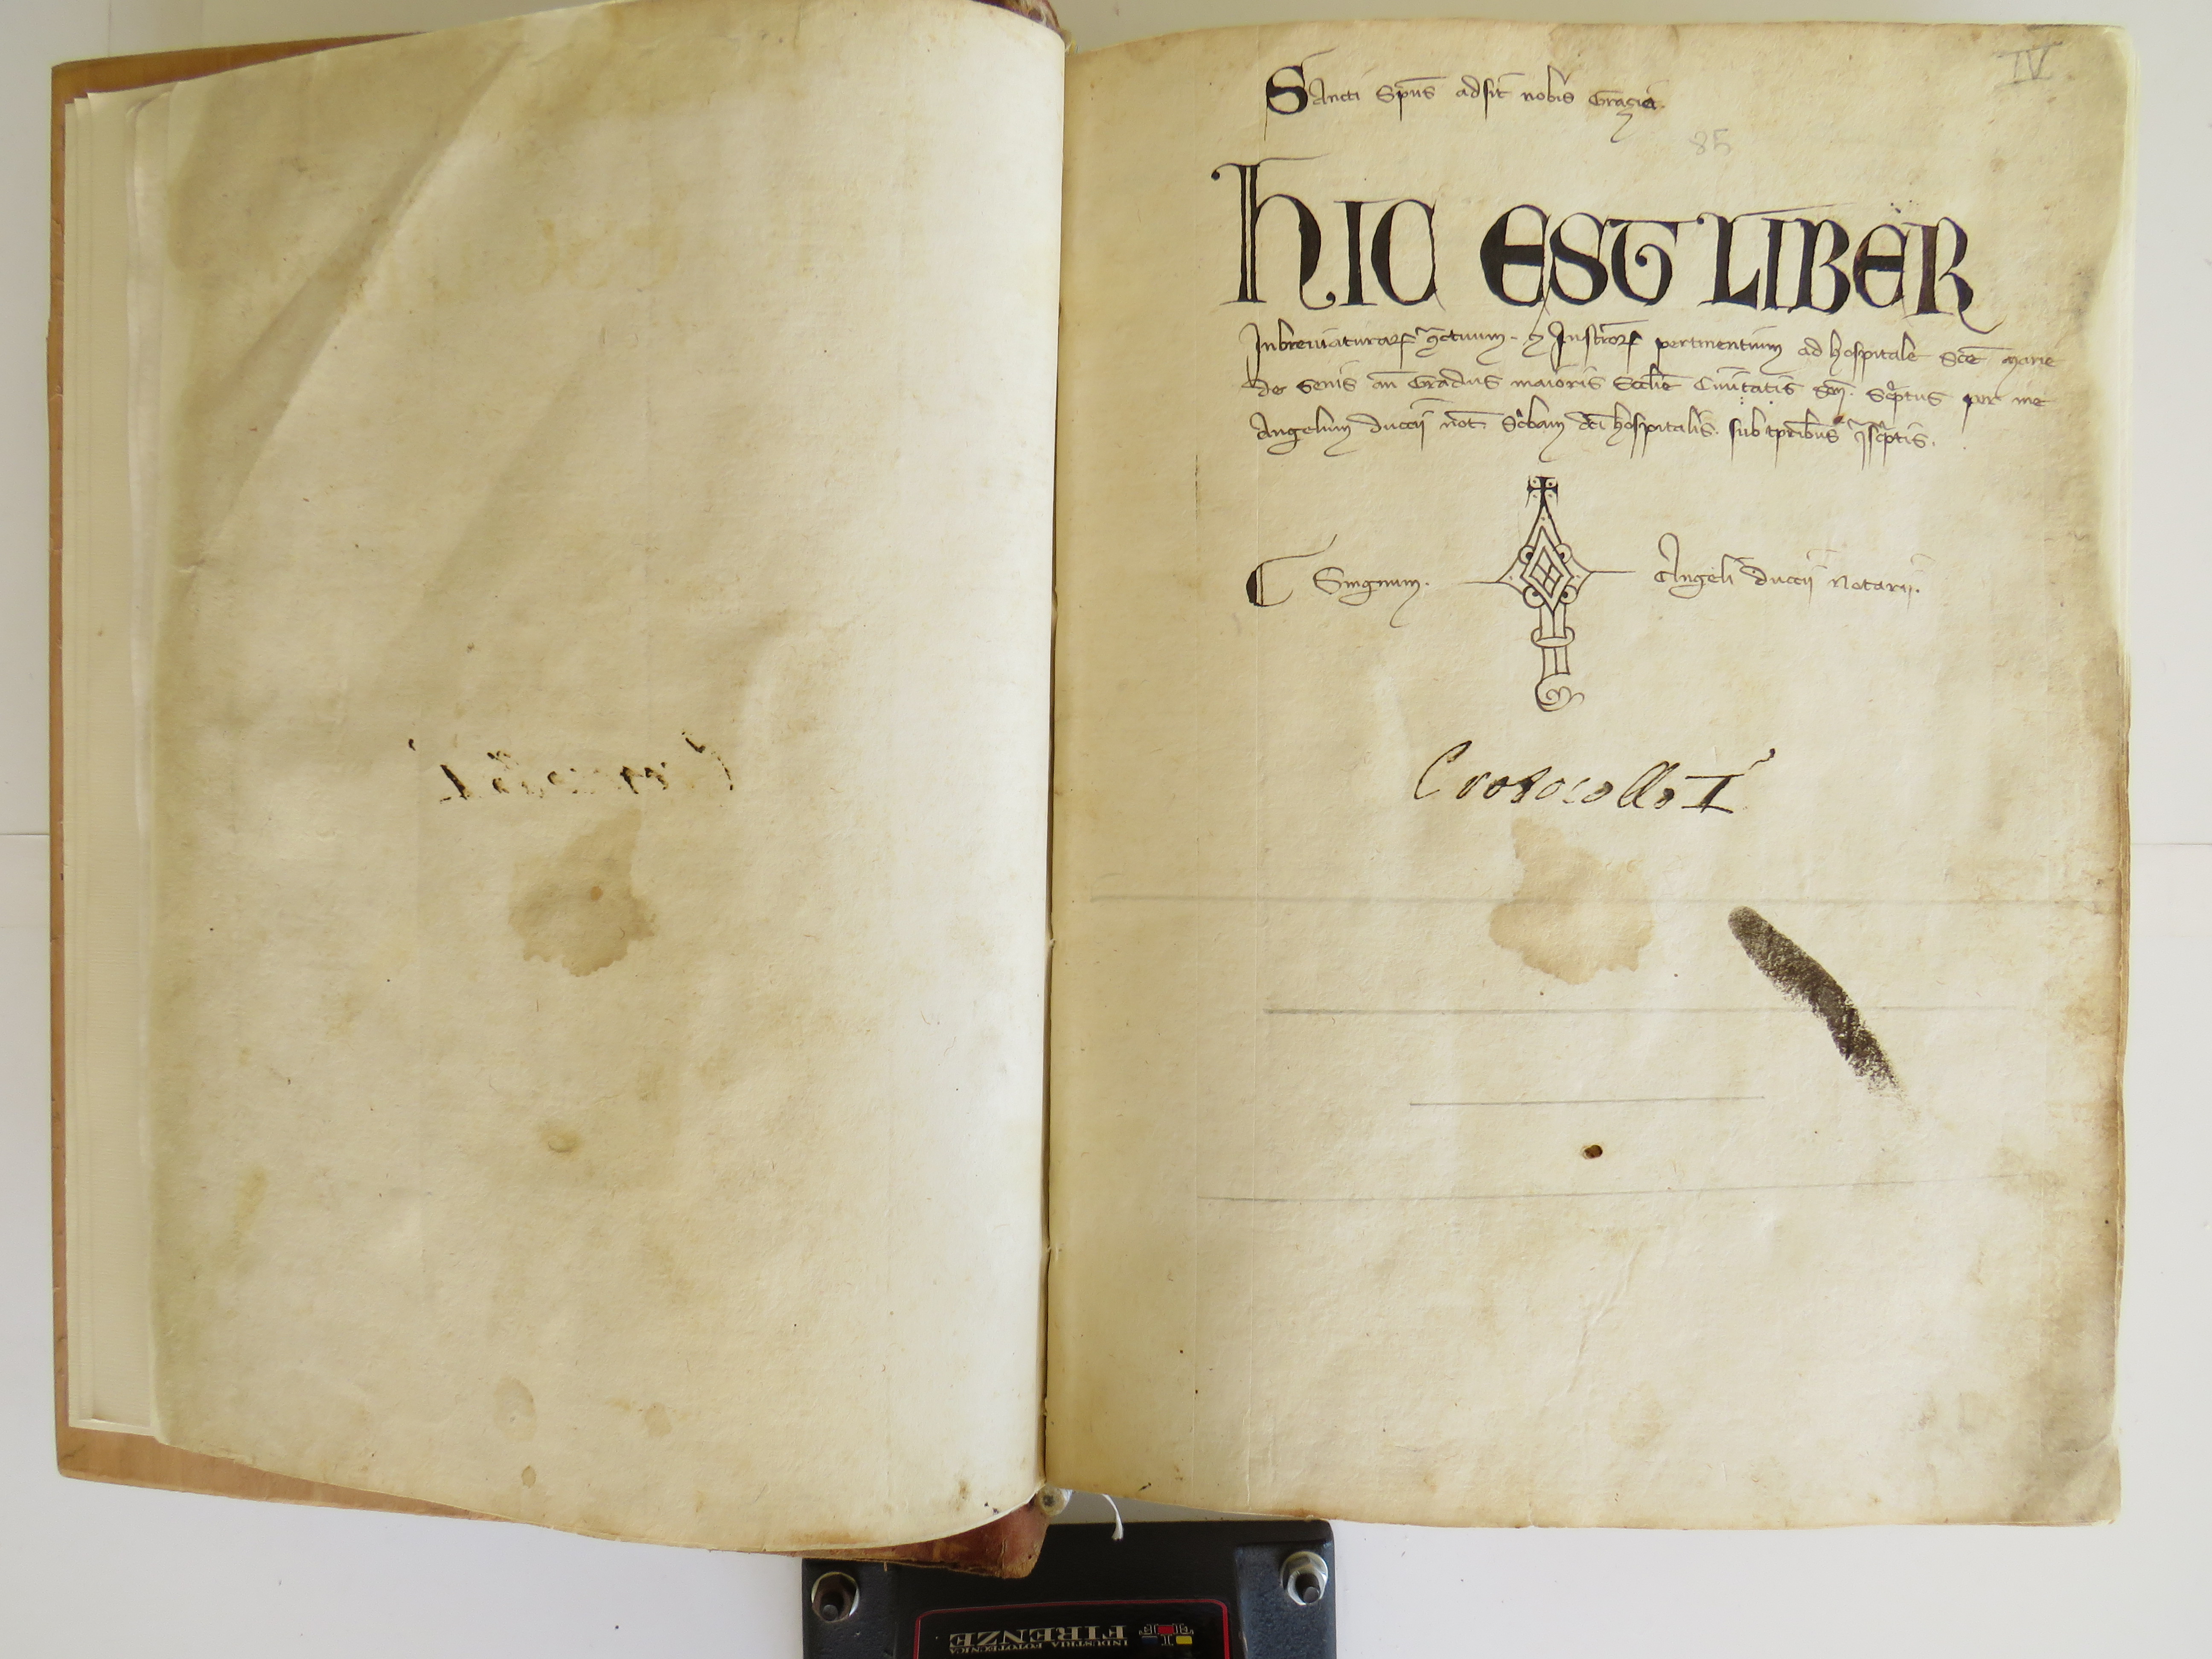 IV
Sancti Spūs adsit nobis Grazia.
85
HIC EST LIBER
Inbreviaturarꝝ 9tractuum. ⁊ Instrorꝝ pertinentium ad hospitale Sce Marie
de Senis an Gradus maioris Ecclie Civitatis Sen. Scptus per me
Angelum duccij not. Scbam dci hospitalis. sub tpribus Iscptis.
Singnum. Angeli duccij Notarij.
Protocollo I
INDUSTRIA FOTOTECNICA
FIRENZE